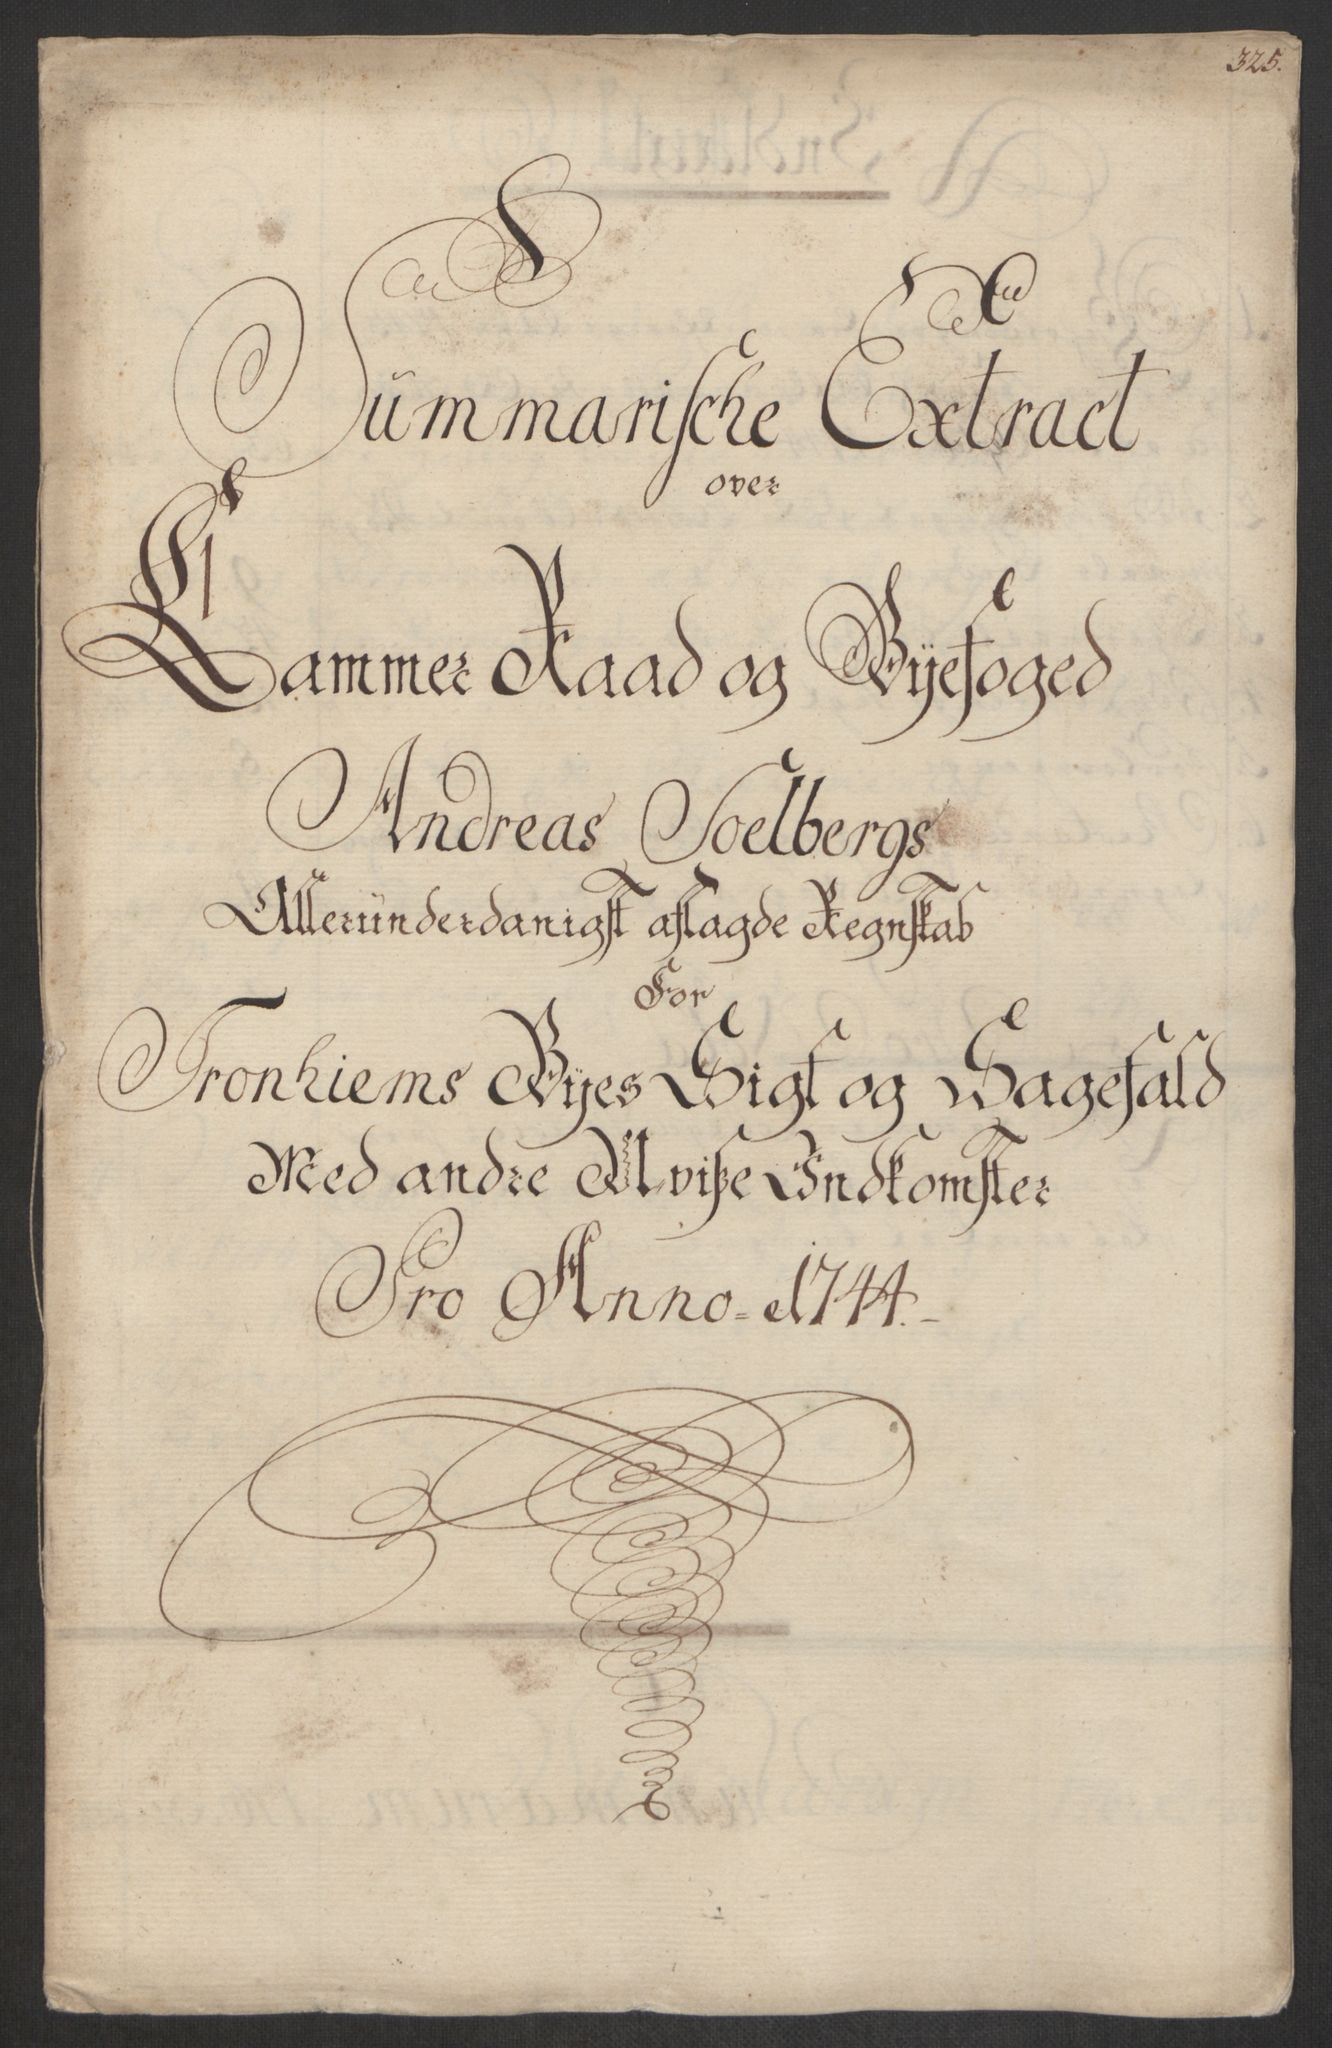 325.
Summarische Extract
over
Cammer Raad og Byefoged
Andreas Soelbergs
Alleründerdanigst aflagde Regnskab
For
Tronhiems Byes Sigt og Sagefald
Med andre Uviße Indkomster
Pro Anno = 1744. -